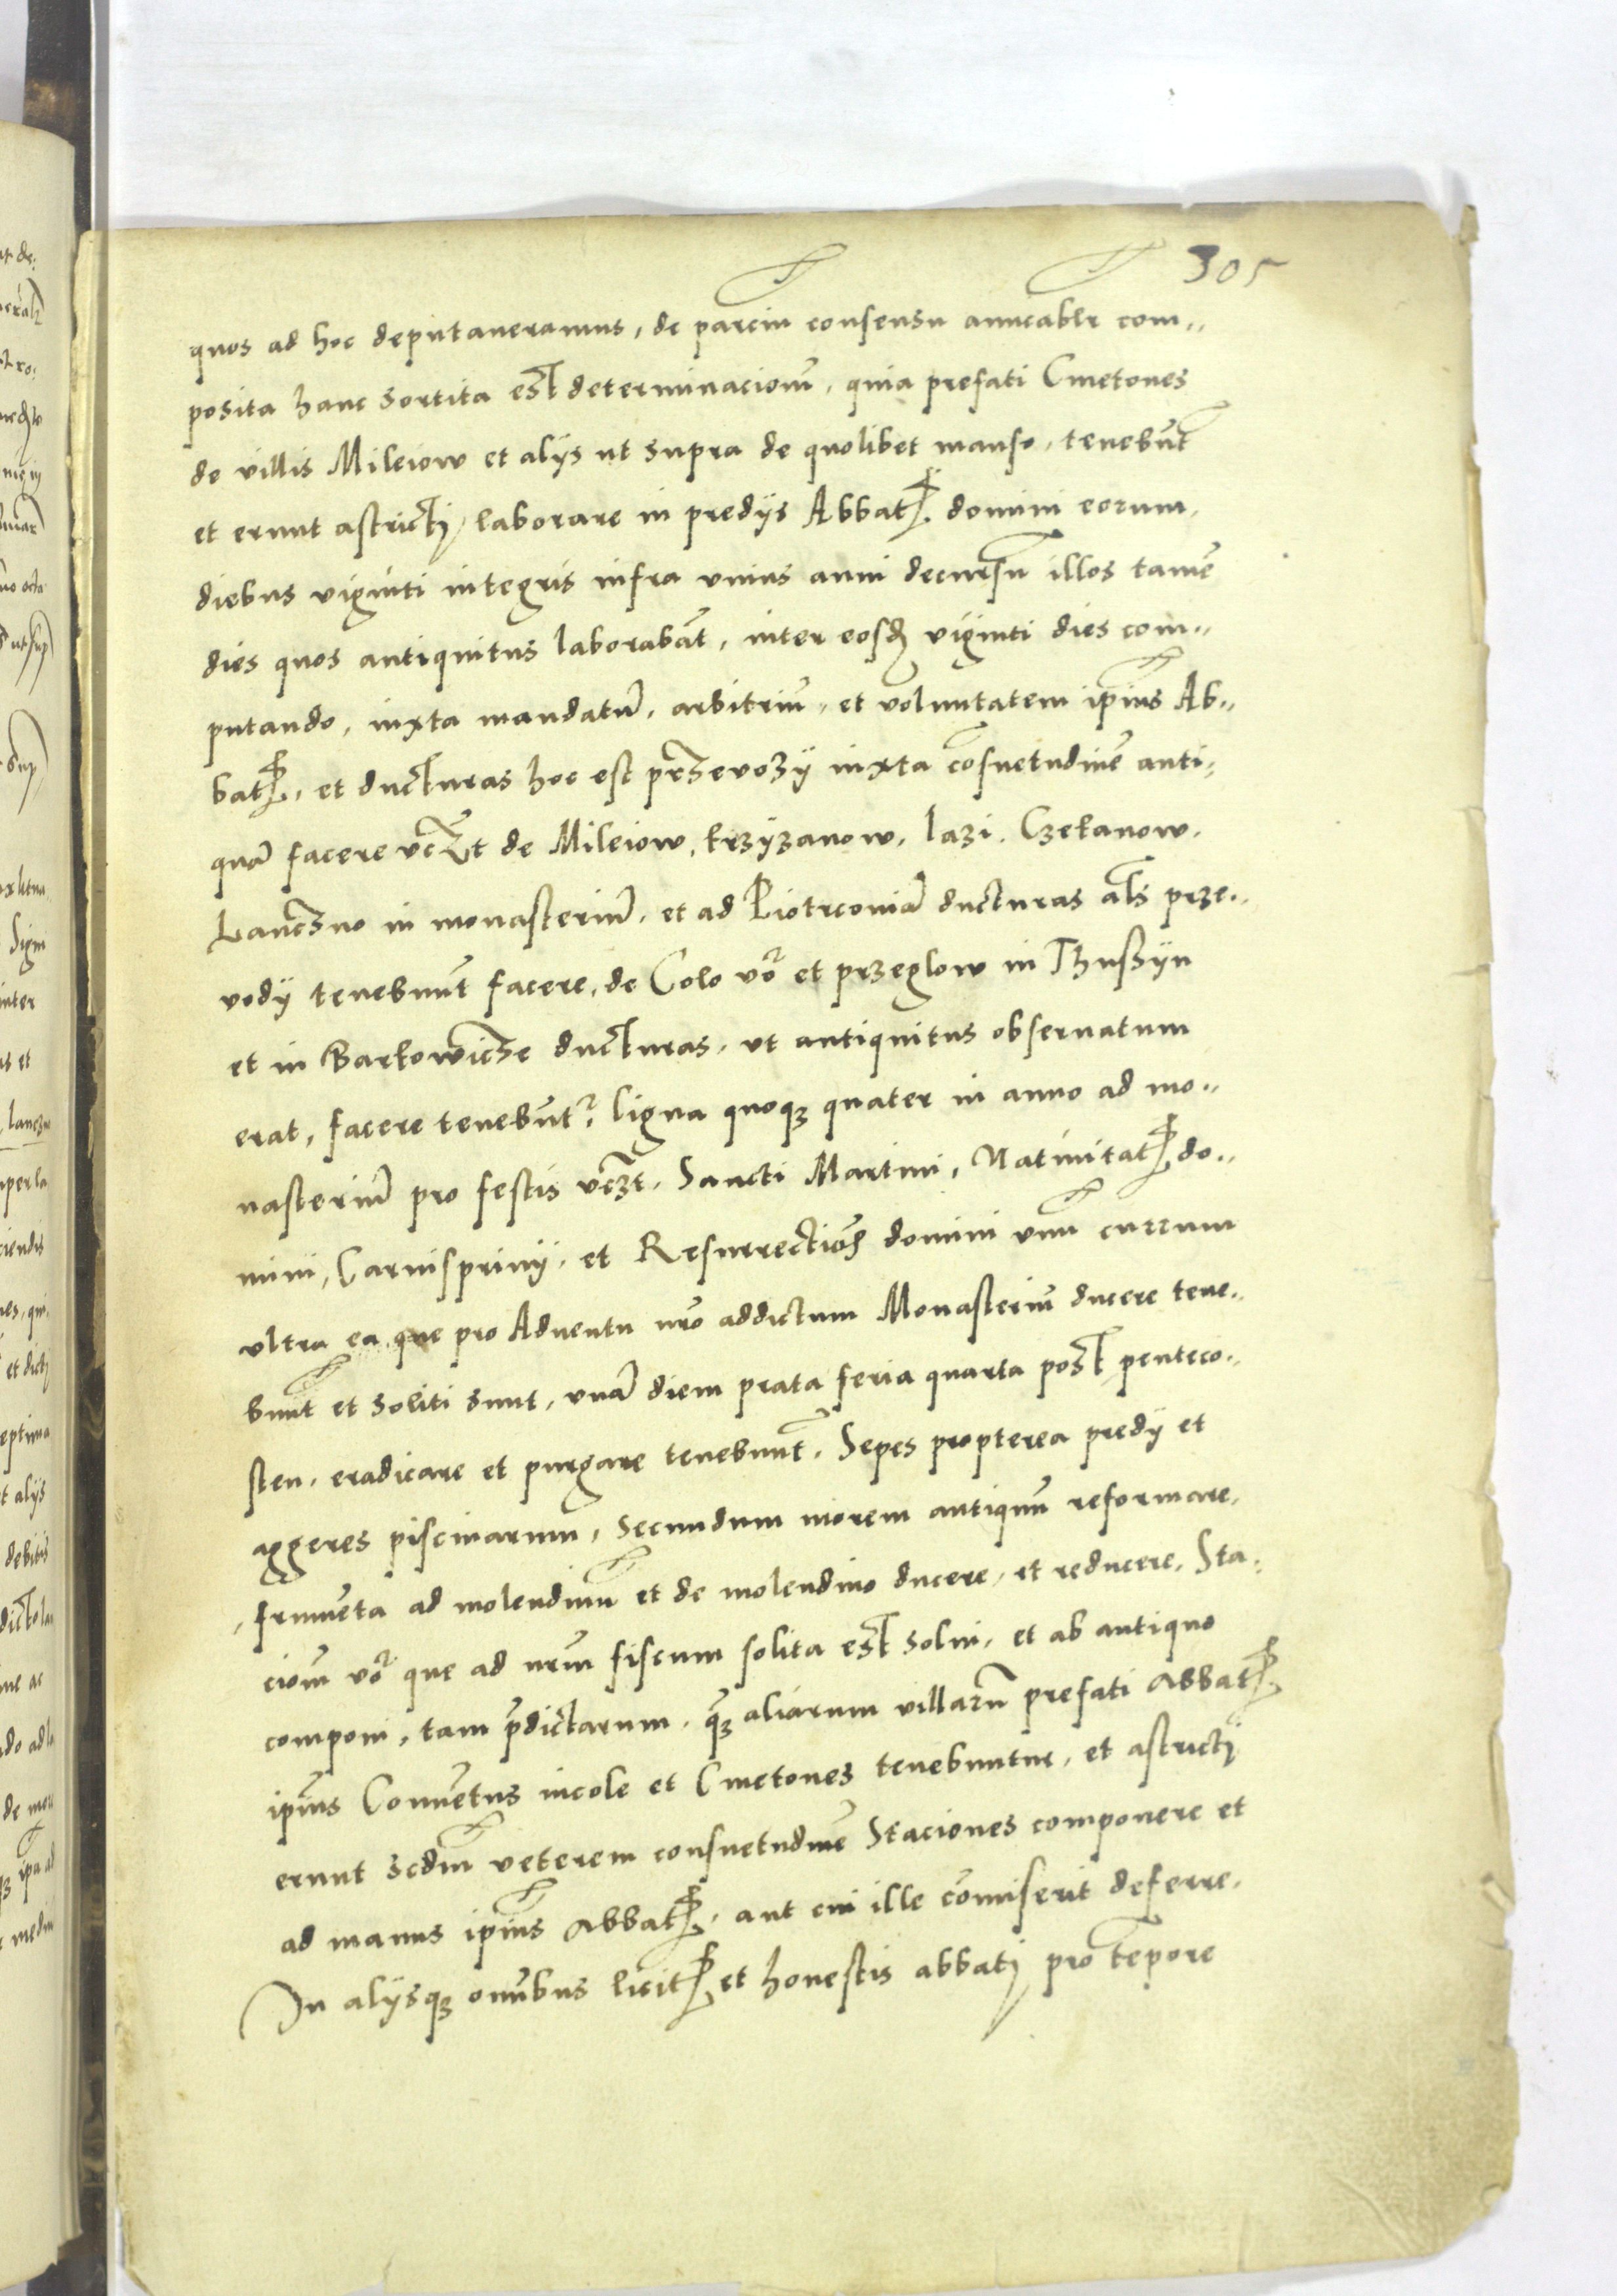 305
quos ad hoc deputaveramus, de parciu consensu amicablr com„
posita hanc sortita est determinacionē, quia prefati Cmetones
de villis Mileiow et alÿs ut supra de quolibet manso, tenebūt
et erunt astricti, laborare in predÿs Abbatꝭ domini eorum,
diebus viginti integris infra vnius anni decursu illos tamē
dies quos antiquitus laborabāt, inter eosdꝫ viginti dies com„
putando, iuxta mandatū, arbitriū, et voluntatem ipīus Ab„
batꝭ, et ducturas hoc est przevozÿ iuxta cōsuetudinē anti„
quā facere vcꝫt de Mileiow, krzÿzanow, lazi, Czekanow,
Lanczno in monasteriū, et ad Piotrcoviā ducturas als prze„
vody tenebunt facere, de Colo vo᷑ et przeglow in Thuszÿn
et in Barkowicze ducturas, ut antiquitus observatum
erat, facere tenebūt᷑, ligna quoqꝫ quater in anno ad mo„
nasteriū pro festis vcꝫt, Sancti Martini, Nativitatꝭ do„
mini, Carnisprivÿ, et Resurrectiōis domini vnū currum
ultra ea que pro Adventu nrō addictum Monasteriū ducere tene„
bunt et soliti sunt, vnā diem prata feria quarta post penteco„
sten, eradicare et purgare tenebunt, Sepes propterea predÿ et
aggeres piscinarum, secundum morem antiquū reformare,
frumēta ad molendinū et de molendino ducere, et reducere, Sta„
cionē vo᷑ que ad nrm̄ fiscum solita est solvi, et ab antiquo
componi, tam p̄dictarum, qꝫ aliarum villarū prefati Abbatꝭ
ipīus Conventus incole et Cmetones tenebuntur, et astricti
erunt scdm veterem consuetudinē Staciones componere et
ad manus ipīus Abbatꝭ, aut cui ille cōmiserit deferre,
In alÿsqꝫ omībus licitꝭ et honestis abbati pro tēpore